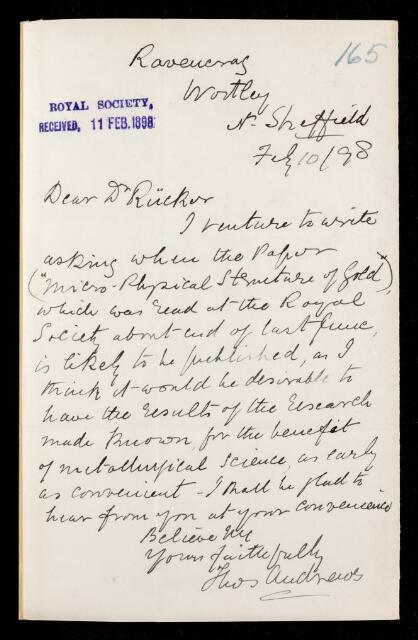 165
Ravencrag
Wortley
Nr Sheffield
Feby 10/98
ROYAL SOCIETY,
RECEIVED, 11 FEB.1898
Dear Dr Rücker
I venture to write
asking when the Paper
("Micro-Physical Structure of Gold"),
which was read at the Royal
Society about end of last June,
is likely to be published, as I
think it would be desirable to
have the results of the research
made known, for the benefit
of metallurgical science, as early
as convenient - I shall be glad to
hear from you at your convenience
Believe Me
Yours faithfully
Thos Andrews